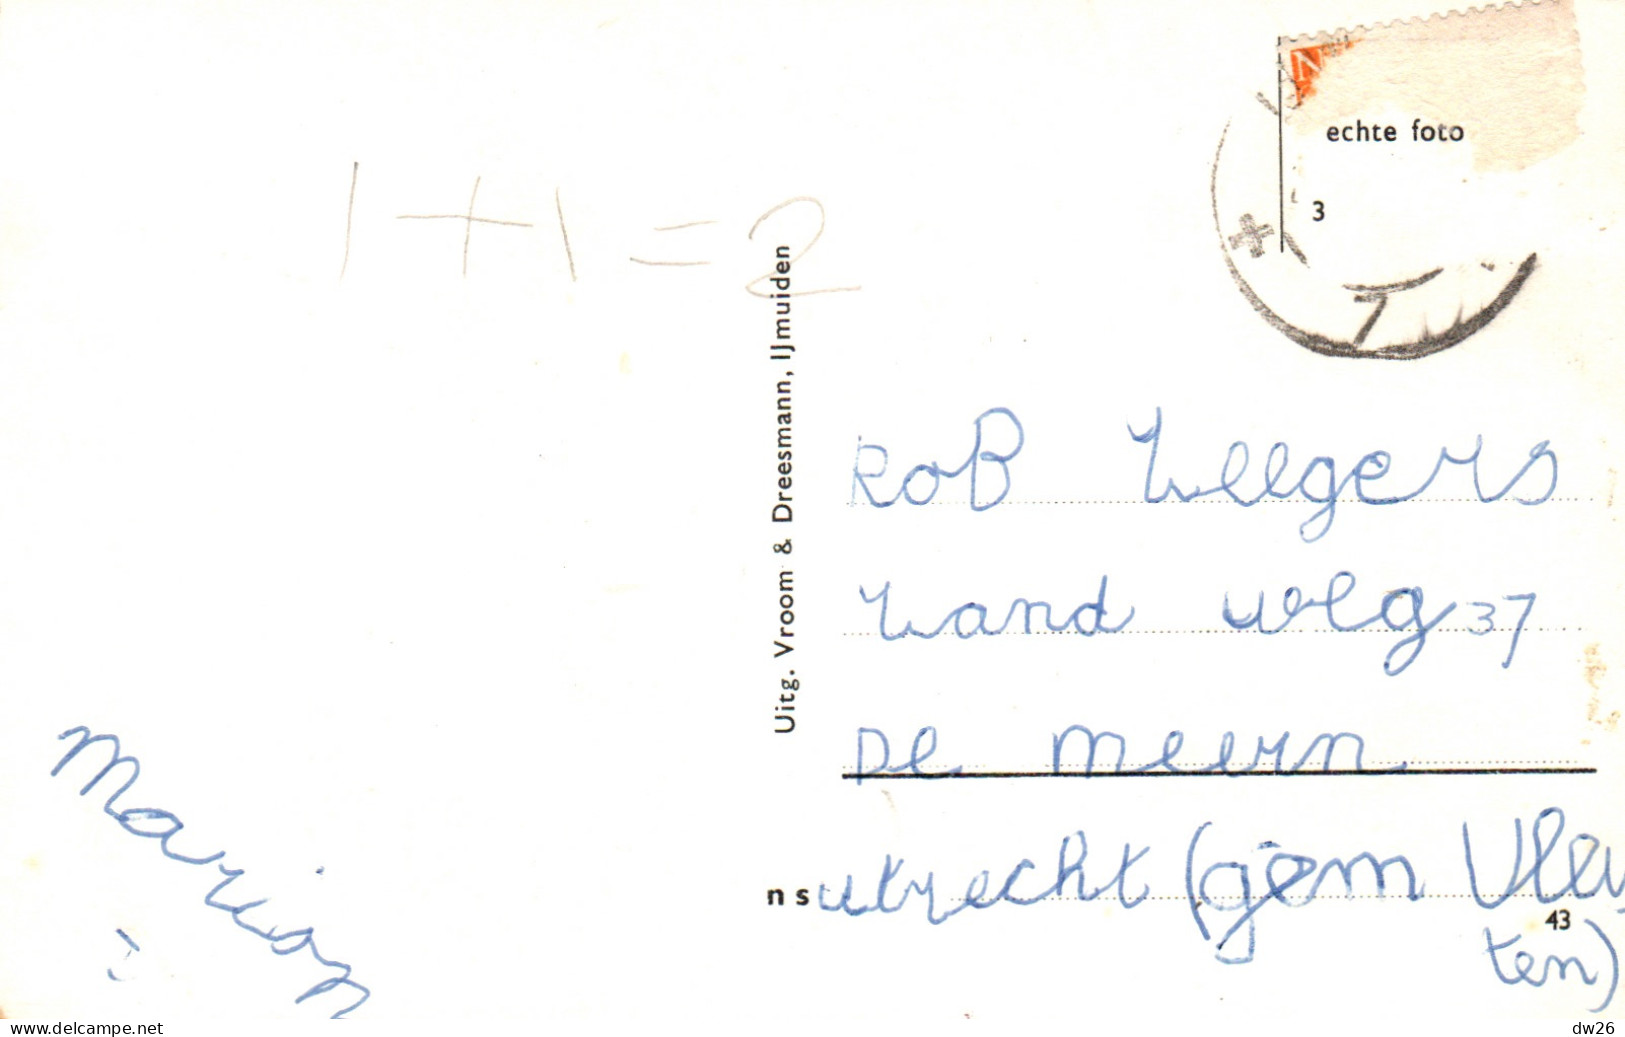 1+1=2
N
echte foto
3
Uitg. Vroom & Dreesmann, IJmuiden
RoB Zeegers
Zand weg 37
De meern
utrecht (gem Vleu
ten)
ns
43
marion
www.delcampe.net
dw26